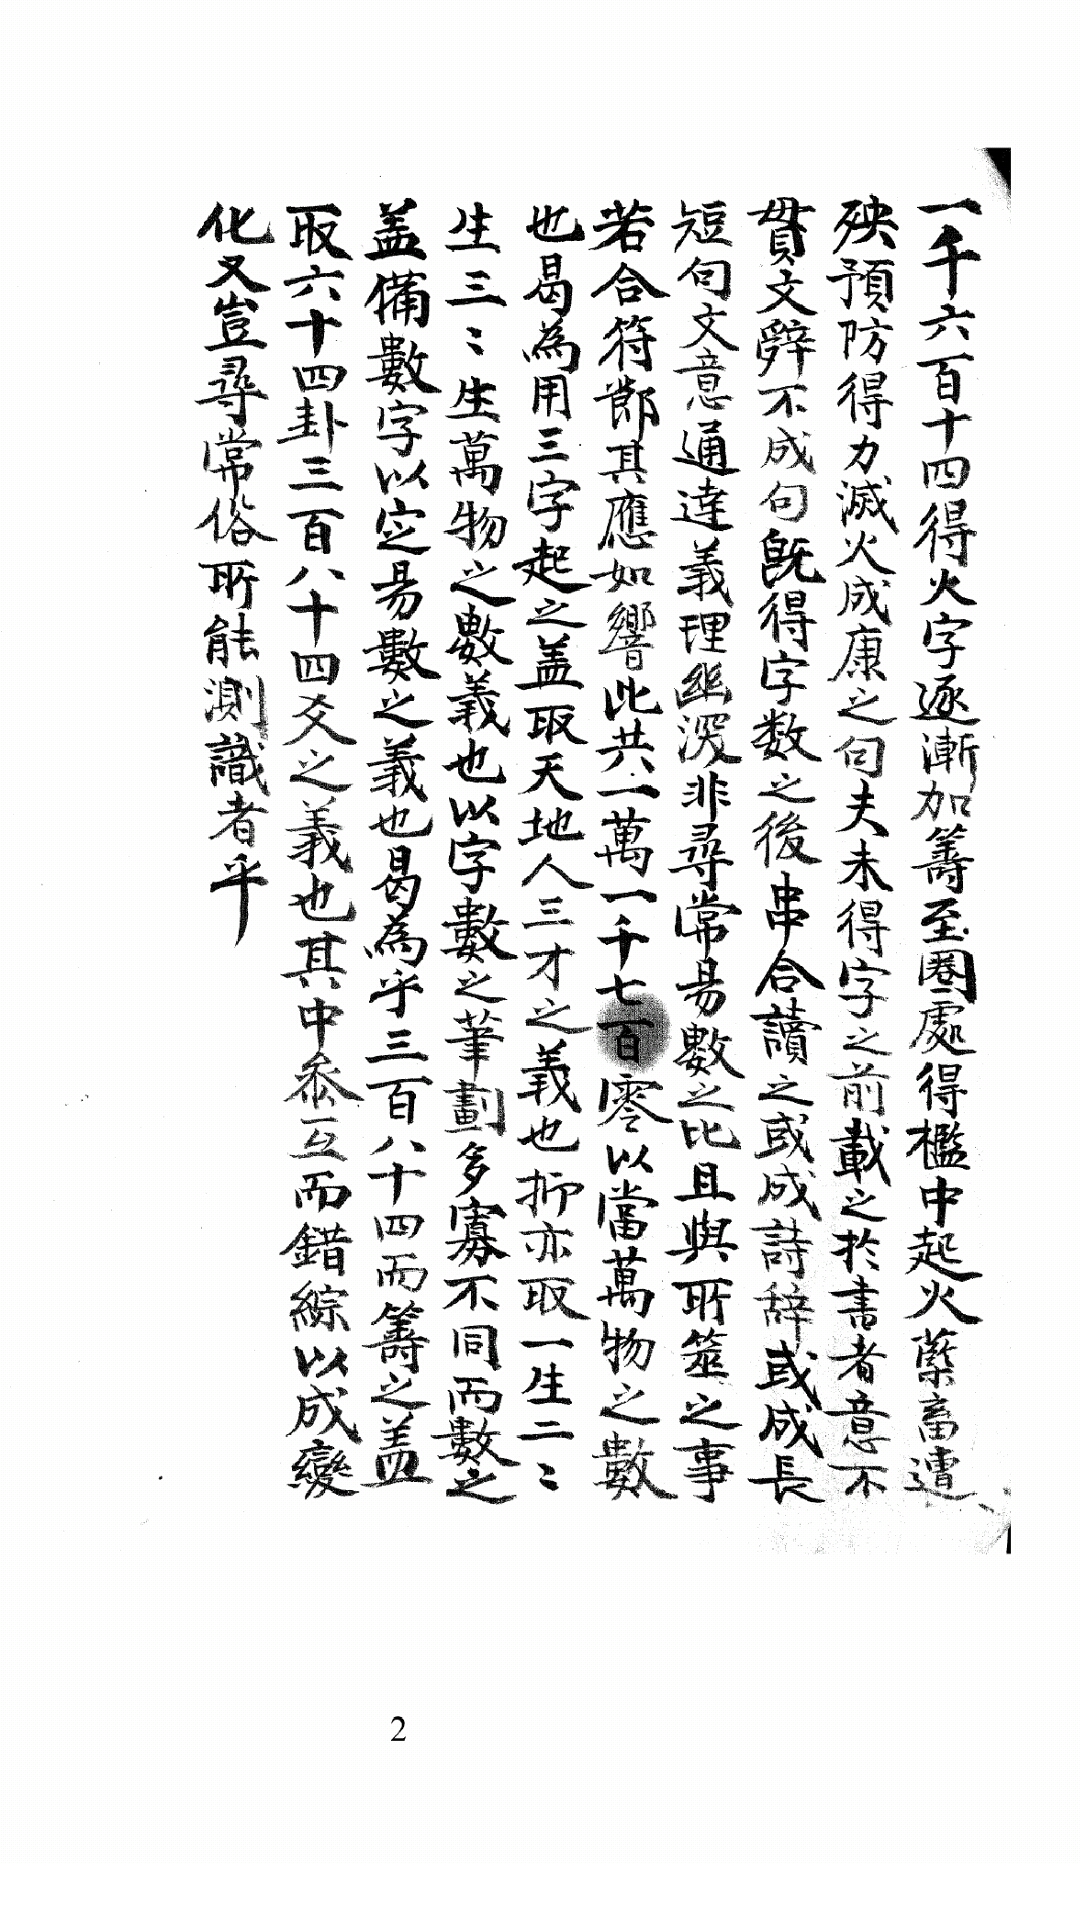 一千六百十四得火字逐漸加籌至圈處得檻中起火藥畜遭
殃預防得力滅火成康之句夫未得字之前載之於書者意不
貫文辭不成句既得字数之後串合讀之或成詩辞或成長
短句文意通達義理幽深非尋常易數之比且與所筮之事
若合符節其應如響此共一萬一千七百零以當萬物之數
也曷為用三字起之盖取天地人三才之義也抑亦取一生二〻
生三〻生萬物之數義也以字數之筆劃多寡不同而數之
盖備數字以定易數之義也曷為乎三百八十四而籌之盖
取六十四卦三百八十四爻之義也其中叅互而錯綜以成變
化又豈尋常俗所能測識者乎
2